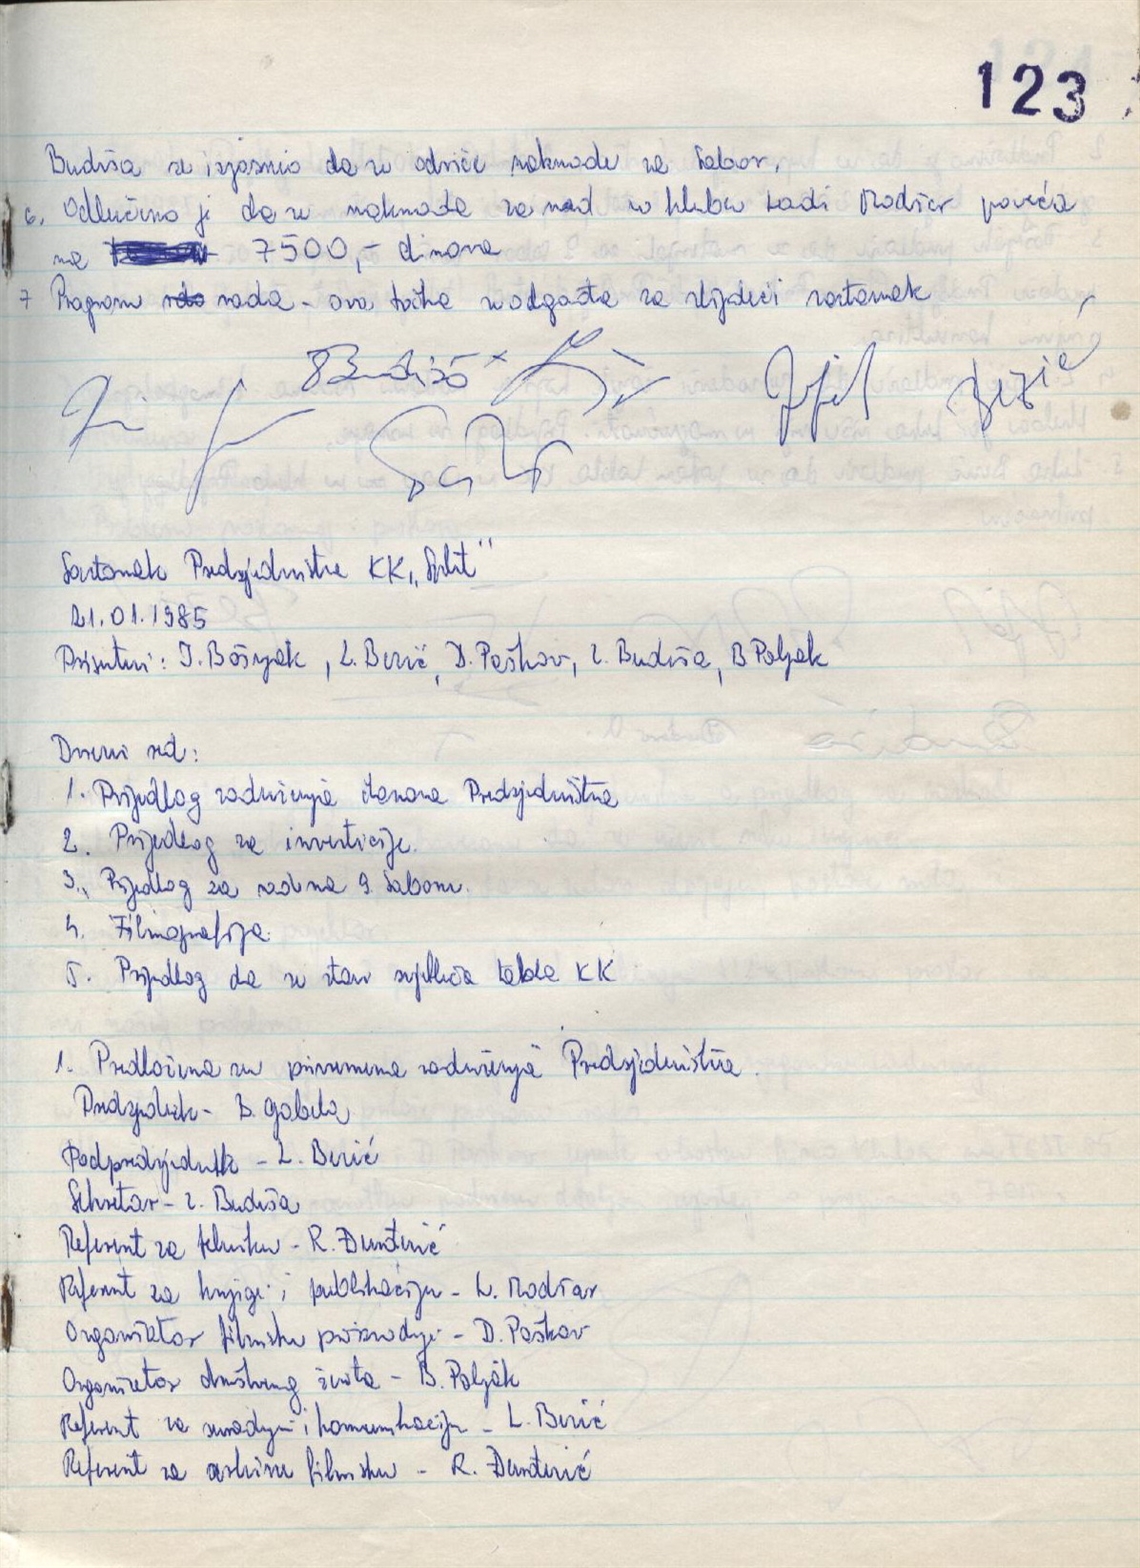 123
Budiša se izjasnio da se odriče naknade za Sabor.
6. Odlučeno je da se naknada za rad u klubu Ladi Modčar poveća
na 7500,- dinara
7 Program rada - ova točka se odgađa za slijedeći sastanak
Budiša
Bezić
Sastanak Predsjedništva KK „Split"
21.01.1985
Prisutni: I. Bošnjak, L. Bezić, D. Peškov, Z. Budiša, B Poljak
Dnevni red:
1. Prijedlog zaduženja članova Predsjedništva
2. Prijedlog za investicije.
3. Prijedlog za rad na 9. Saboru.
4. Filmografija.
5. Prijedlog da se stavi svjetleća tabla KK
1. Predložena su privremena zaduženja Predsjedništva.
Predsjednik - B. Gabela
Podpredsjednik - L. Bezić
Sekretar - Z. Budiša
Referent za tehniku - R. Đunđerić
Referent za knjige i publikacije - L. Modčar
Organizator filmske proizvodnje - D. Peškov
Organizator društvenog života - B. Poljak
Referent za suradnju i komunikaciju - L. Bezić
Referent za arhivu filmsku - R. Đunđerić